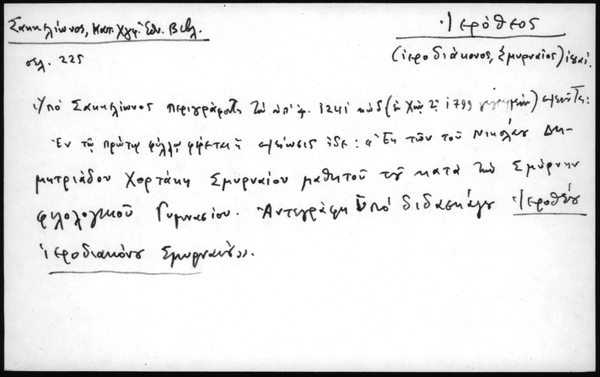 Σακκελίωνος, Κατ. Χγφ. Ἐθν. Βιβλ.
Ἱερόθεος
σελ. 225
(ἱεροδιάκονος, Σμυρναῖος)
Ὑπὸ Σακκελίωνος περιγράφοντος τὸν ὑπ' ἀρ. 1241 κώδ. 1799
Ἐν τῷ πρώτῳ φύλλῳ φέρεται σημείωσις ἥδε: «Ἐκ τῶν τοῦ Νικολάου Δη-
μητριάδου Χορτάκη Σμυρναίου μαθητοῦ τοῦ κατὰ τὴν Σμύρνην
φιλολογικοῦ Γυμνασίου. Ἀντεγράφη ὑπὸ διδασκάλου Ἱεροθέου
ἱεροδιακόνου Σμυρναίου».